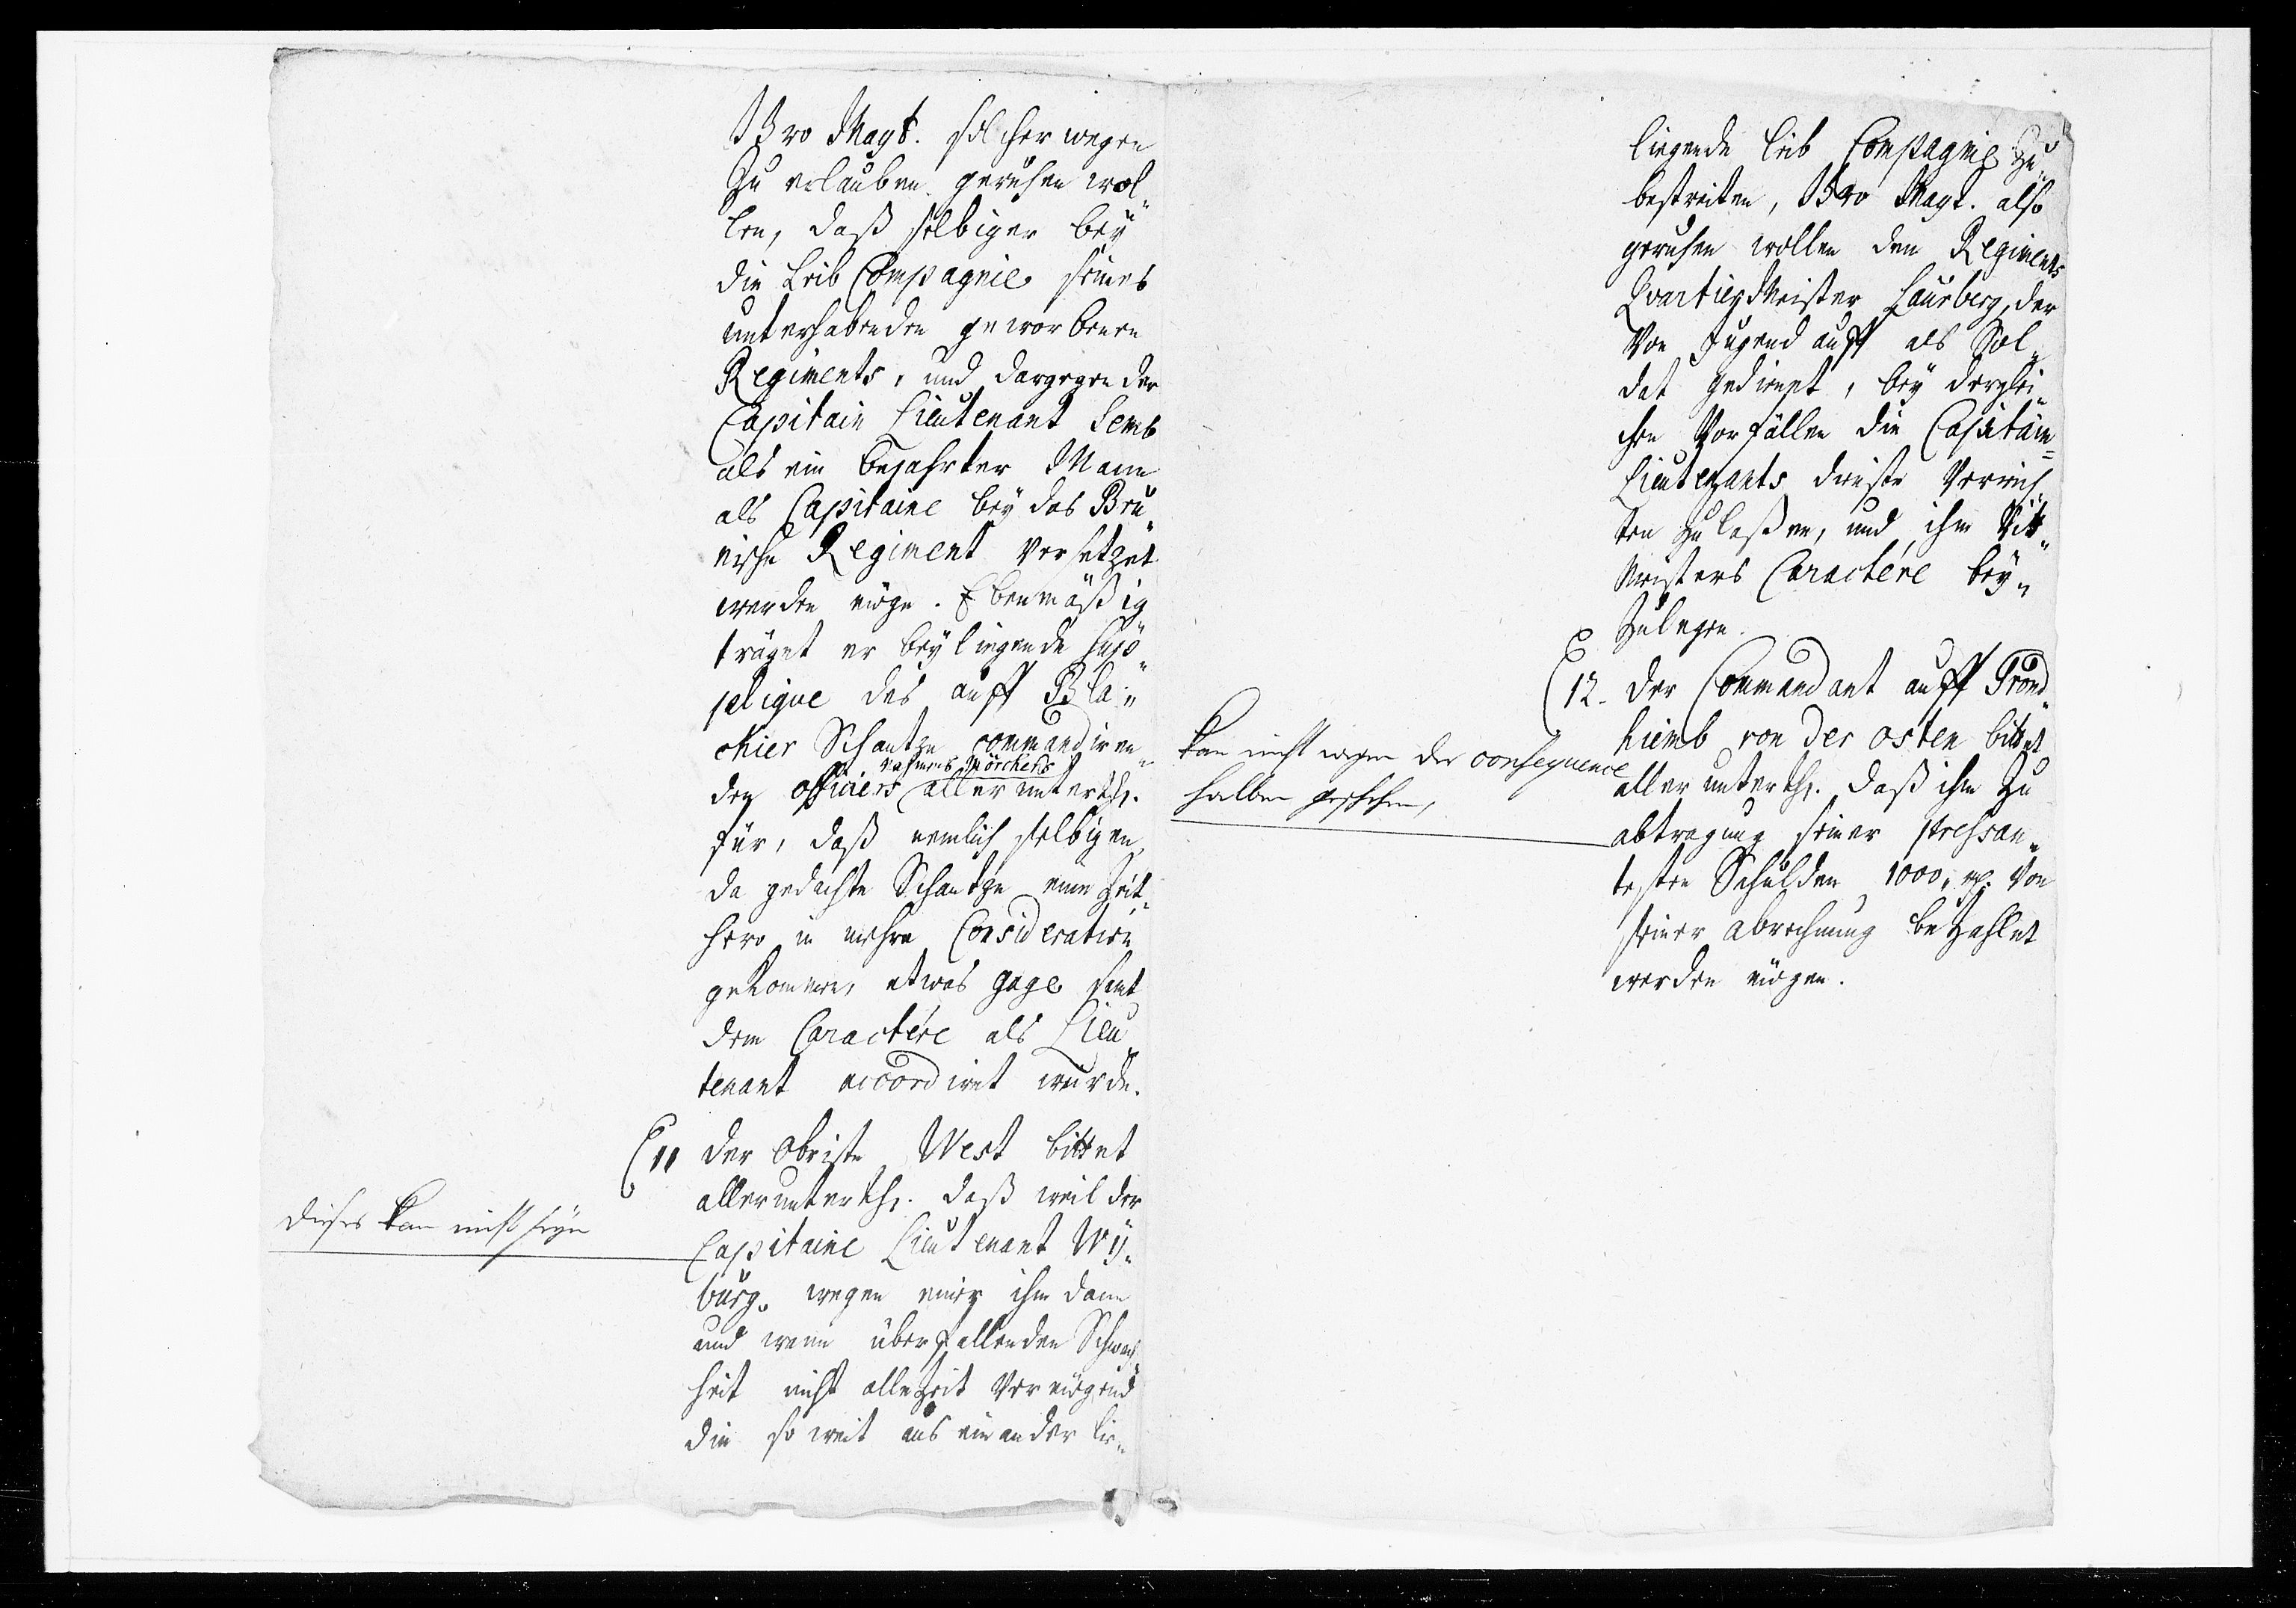 Ihro Mayt. solcher wegen
Zu erlauben geruhen wol„
len, daß selbiger bey
die Leib Compagnie seines
unterhabenden geworbenen
Regiments, und dargegen der
Capitain Lieutenant Lemb
als ein bejahrter Mann
als Capitaine bey das Bru„
nische Regiment versetzet
werden möge. Ebenmäßig
träget er beyliegende Sup„
plique des auff Bla„
chier Schantze commandiren„
nahmens Mörchens
den Officiers allerunterth.
für, daß nemlich selbigen,
da gedachte Schantze eine Zeit„
hero in mehre Consideration
gekommen, etwas gage samt
dem Caractére als Lieu„
tenant accordiret würde.
11 der Obriste West bittet
allerunterth. daß weil der
Capitaine Lieutenant Wÿ„
burg. wegen einer ihm dann
und wann überfallenden Schwach„
heit nicht allezeit vermögend
die so weit aus einander lie„
dieses kan nicht seyn
liegende Leib Compagnie zu
bestreiten, Ihro Mayt. also
geruhen wollen den Regiments
QuartierMeister Laurberg, der
von Jugend auff als Sol„
dat gedienet, bey derglei„
chen Vorfällen die Capitain„
Lieutenants dienste verrich„
ten zu laßen, und ihm Ritt„
Meisters Caractére bey„
zulegen.
12. der Commandant auff Trond„
hiemb von der Osten bittet
allerunterth. daß ihm zu
abtragung seiner pressan„
testen Schulden 1000, rp. von
seiner abrechnung bezahlet
werden mögen.
kan nicht wegen der consequence
halben geschehen,